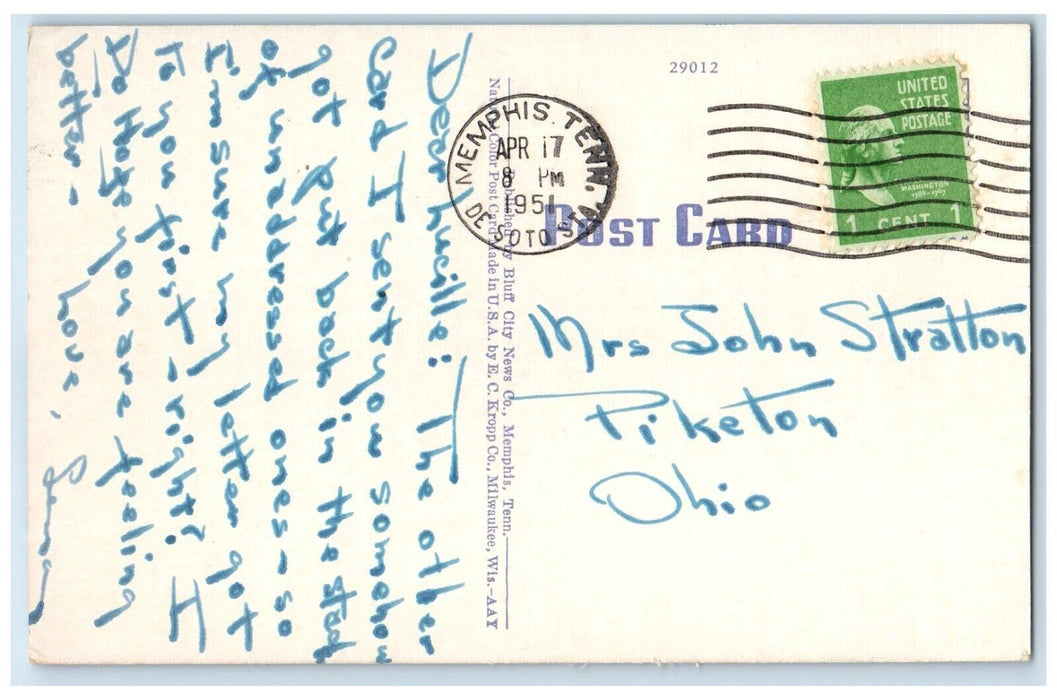 Dear Lucille: The other
card I sent you somehow
got put back in the stack
of unaddressed ones - so
I'm sure my letter got
to you first - right? I
Do Hope you are feeling
better -
Love,
Published by Bluff City News Co., Memphis, Tenn.
Color Post Card Made in U.S.A. by E. C. Kropp Co., Milwaukee, Wis.-AAY
29012
MEMPHIS, TENN.
APR 17
8 PM
1951
DE SOTO STA.
UNITED
STATES
POSTAGE
WASHINGTON
1789-1797
1 CENT 1
POST CARD
Mrs John Stratton
Piketon
Ohio